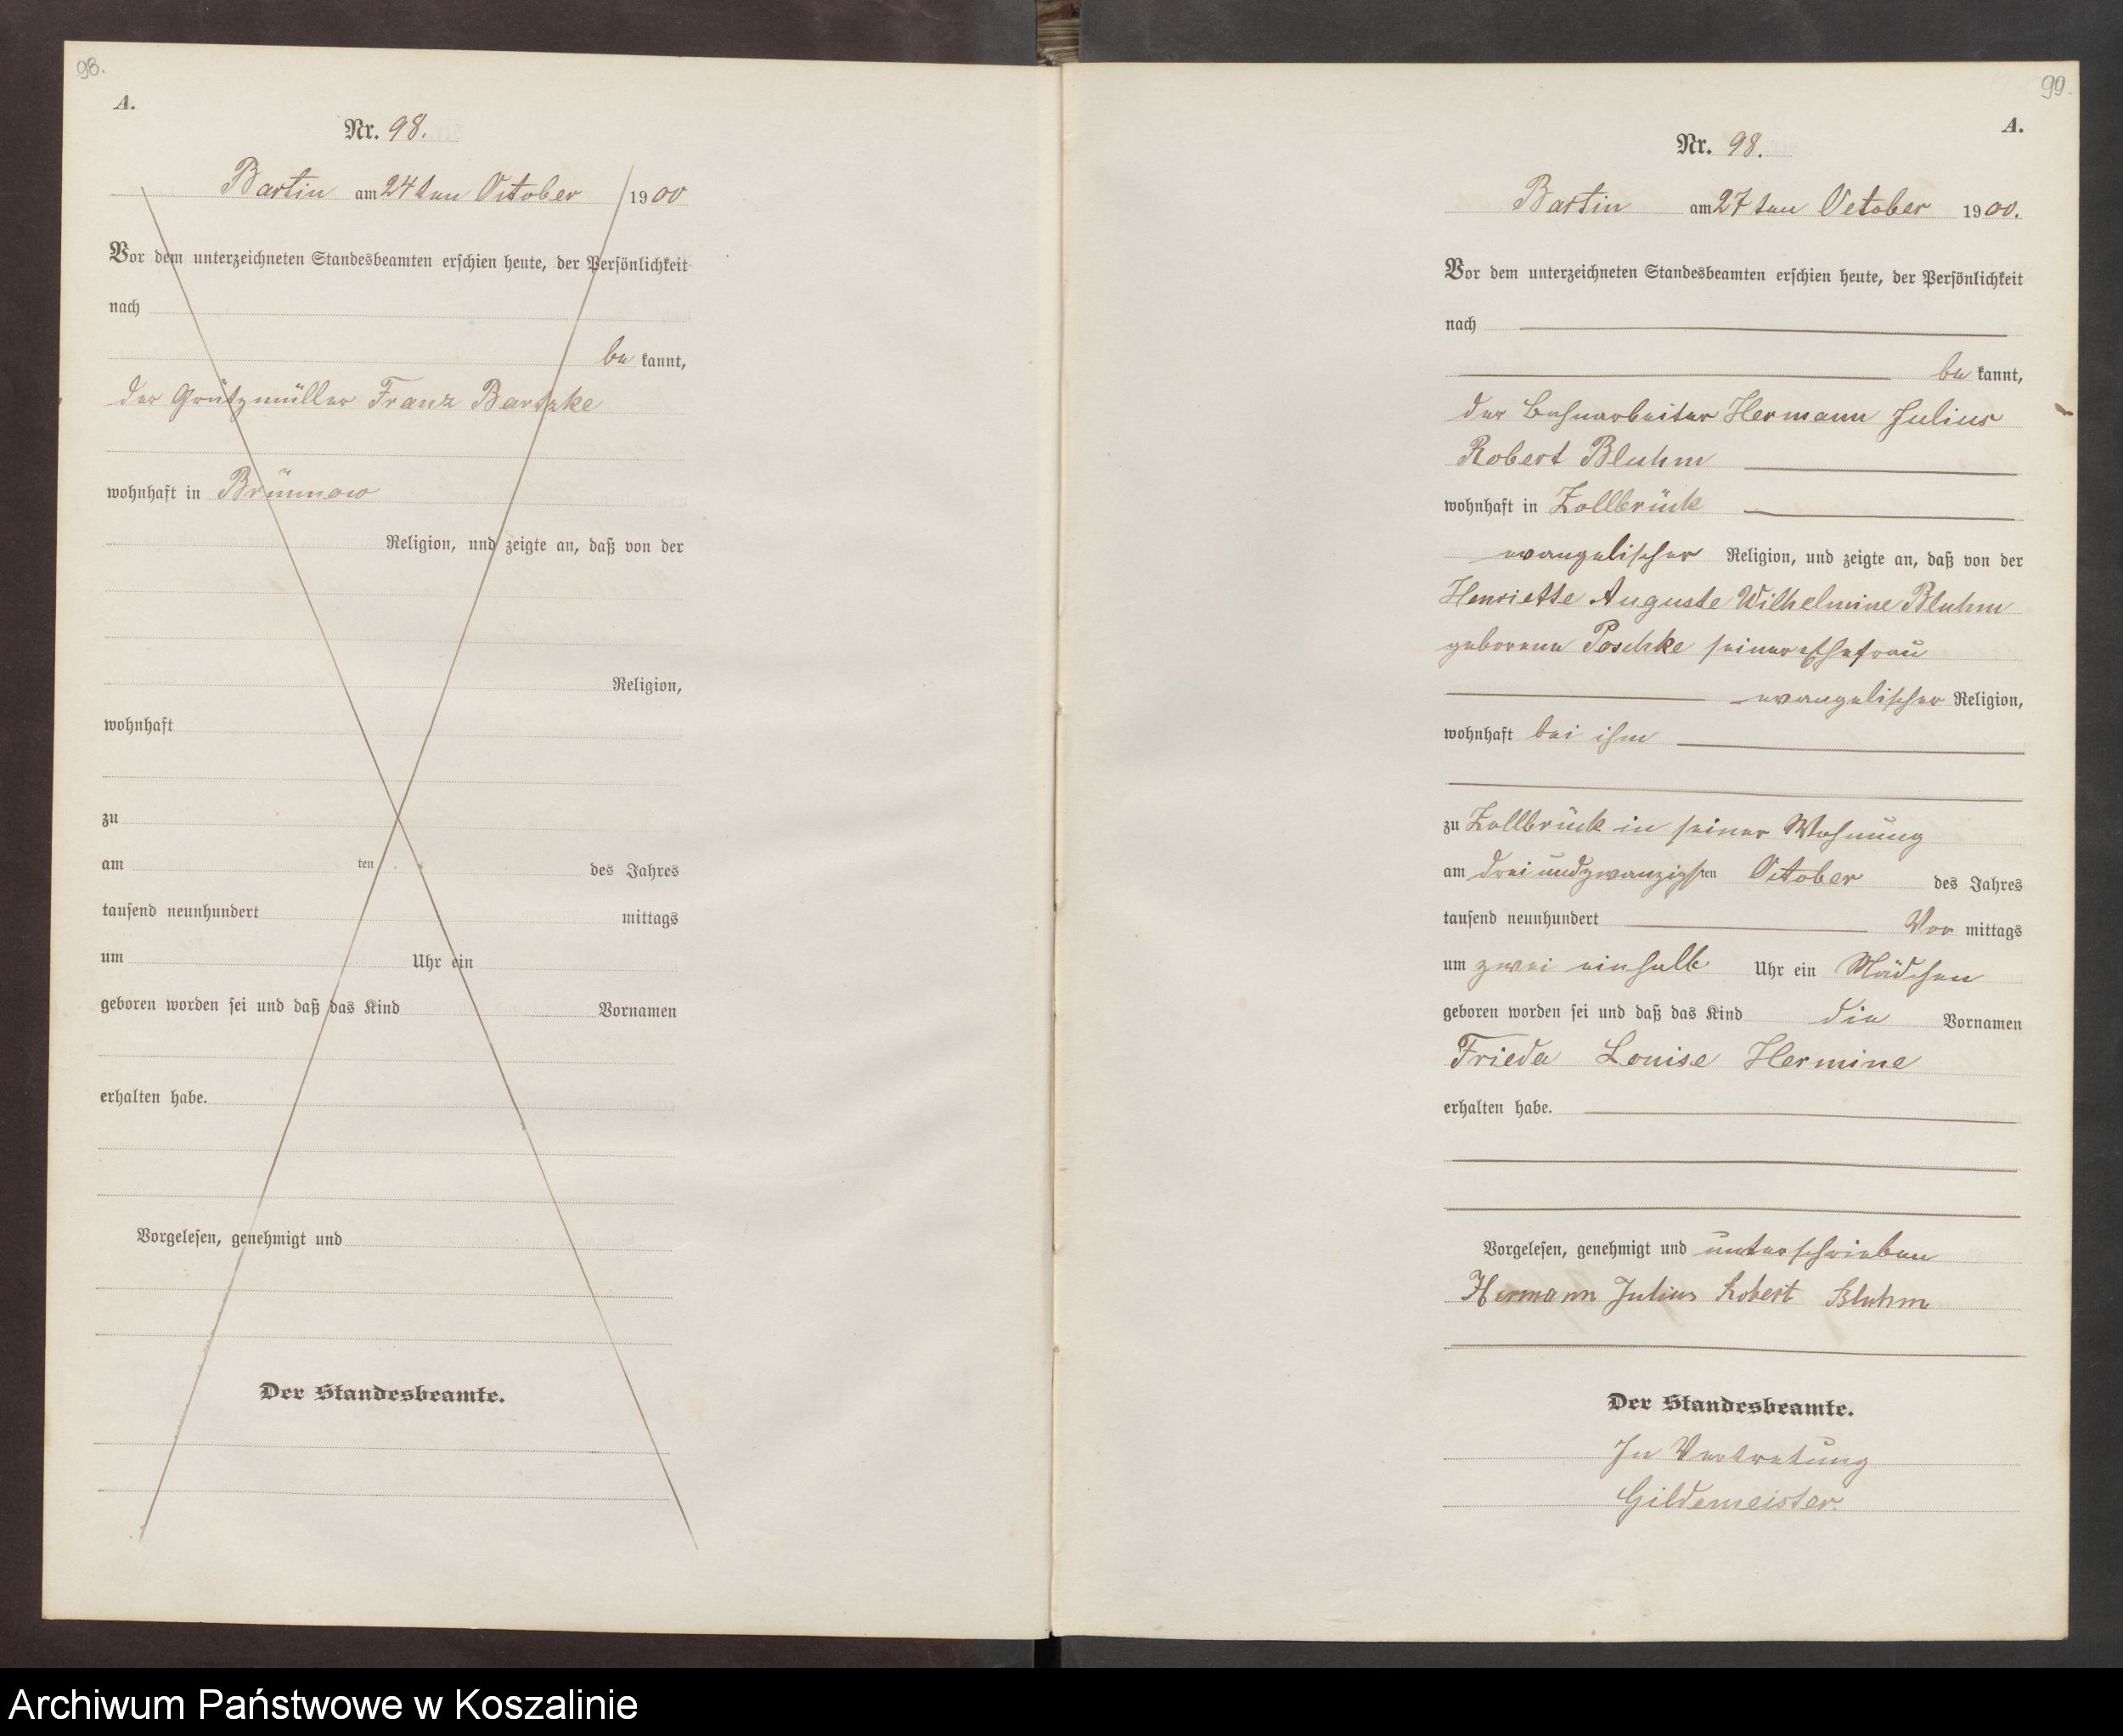 98.
A.
Nr. 98.
Bartin am 24ten October 1900
Vor dem unterzeichneten Standesbeamten erschien heute, der Persönlichkeit
nach
be kannt,
der Grützmüller Franz Bartzke
wohnhaft in Brünnow
Religion, und zeigte an, daß von der
Religion,
wohnhaft
zu
am ten des Jahres
tausend neunhundert mittags
um Uhr ein
geboren worden sei und daß das Kind Vornamen
erhalten habe.
Vorgelesen, genehmigt und
Der Standesbeamte.
99.
A.
Nr. 98.
Bartin am 27ten October 1900.
Vor dem unterzeichneten Standesbeamten erschien heute, der Persönlichkeit
nach
be kannt,
der Bahnarbeiter Hermann Julius
Robert Bluhm
wohnhaft in Zollbrück
evangelischer Religion, und zeigte an, daß von der
Henriette Auguste Wilhelmine Bluhm
geborene Poschke seiner Ehefrau
evangelischer Religion,
wohnhaft bei ihm
zu Zollbrück in seiner Wohnung
am dreiundzwanzigsten October des Jahres
tausend neunhundert Vor mittags
um zwei einhalb Uhr ein Mädchen
geboren worden sei und daß das Kind die Vornamen
Frieda Louise Hermine
erhalten habe.
Vorgelesen, genehmigt und unterschrieben
Hermann Julius Robert Bluhm
Der Standesbeamte.
In Vertretung
Gildemeister
Archiwum Państwowe w Koszalinie